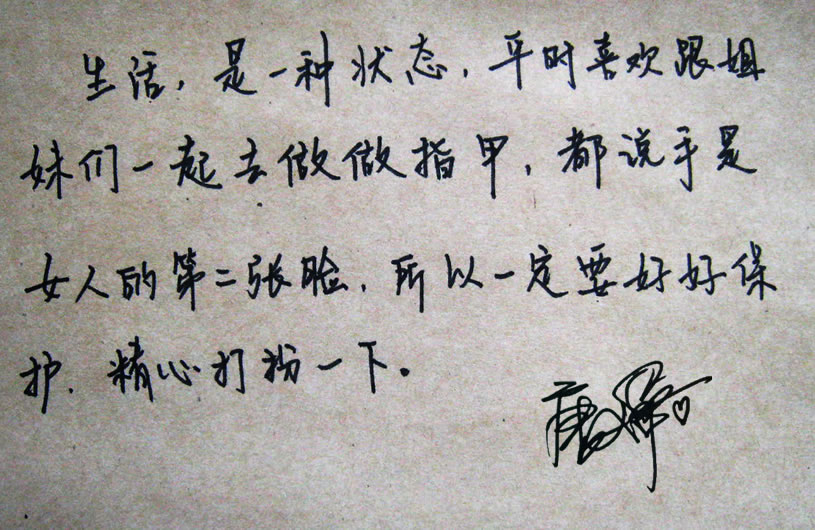 生活,是一种状态,平时喜欢跟姐
妹们一起去做做指甲,都说手是
女人的第二张脸,所以一定要好好保
护.精心打扮一下。